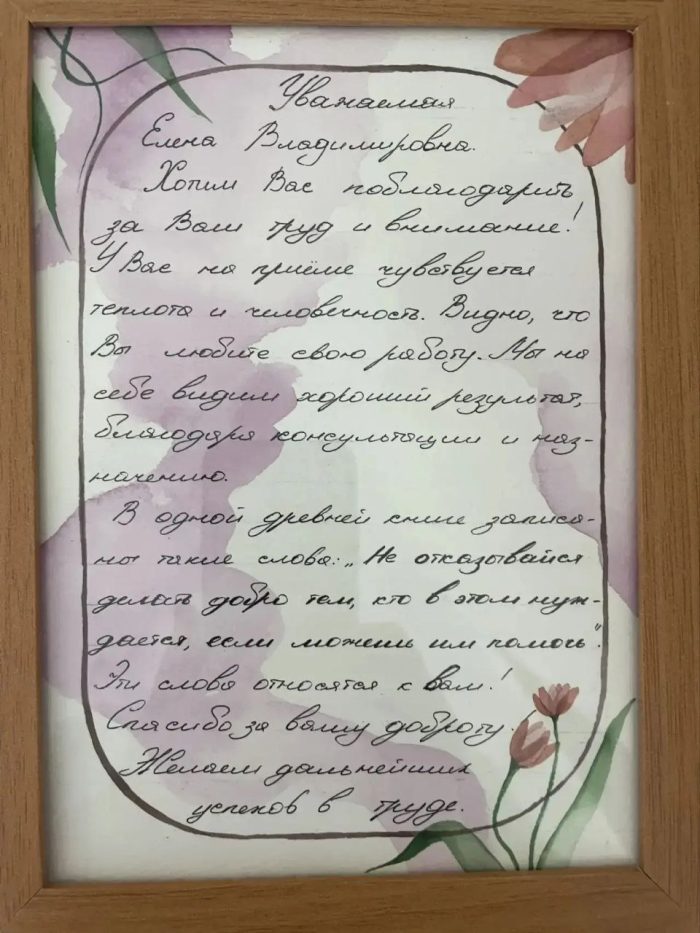 Уважаемая
Елена Владимировна.
Хотим Вас поблагодарить
за Ваш труд и внимание!
У Вас на приёме чувствуется
теплота и человечность. Видно, что
Вы любите свою работу. Мы на
себе видим хороший результат,
благодаря консультации и наз-
начению.
В одной древней книге записа-
ны такие слова: „Не отказывайся
делать добро тем, кто в этом нуж-
дается, если можешь им помочь".
Эти слова относятся к вам!
Спасибо за вашу доброту.
Желаем дальнейших
успехов в труде.